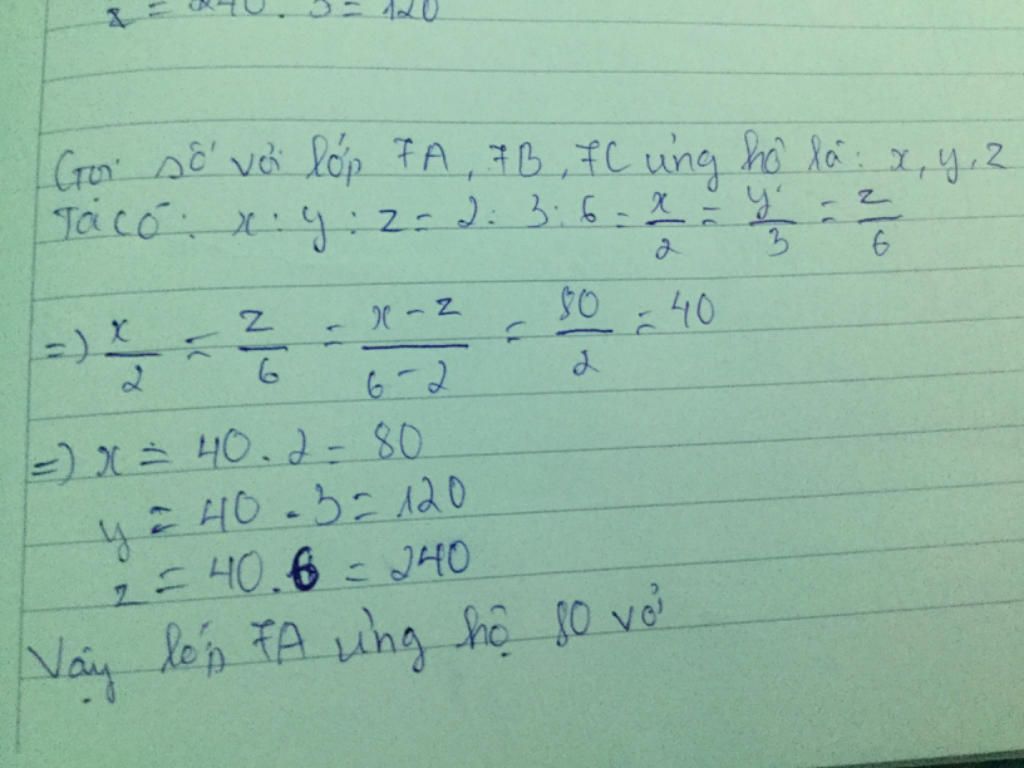 x = 240 . 3 = 120
Gọi số vở lớp 7A, 7B, 7C ủng hộ là: x, y, z
Ta có: x : y : z = 2 : 3 : 6 = x/2 = y/3 = z/6
=) x/2 = z/6 = x - z/6 - 2 = 80/2 = 40
=) x = 40 . 2 = 80
y = 40 . 3 = 120
z = 40 . 6 = 240
Vậy lớp 7A ủng hộ 80 vở